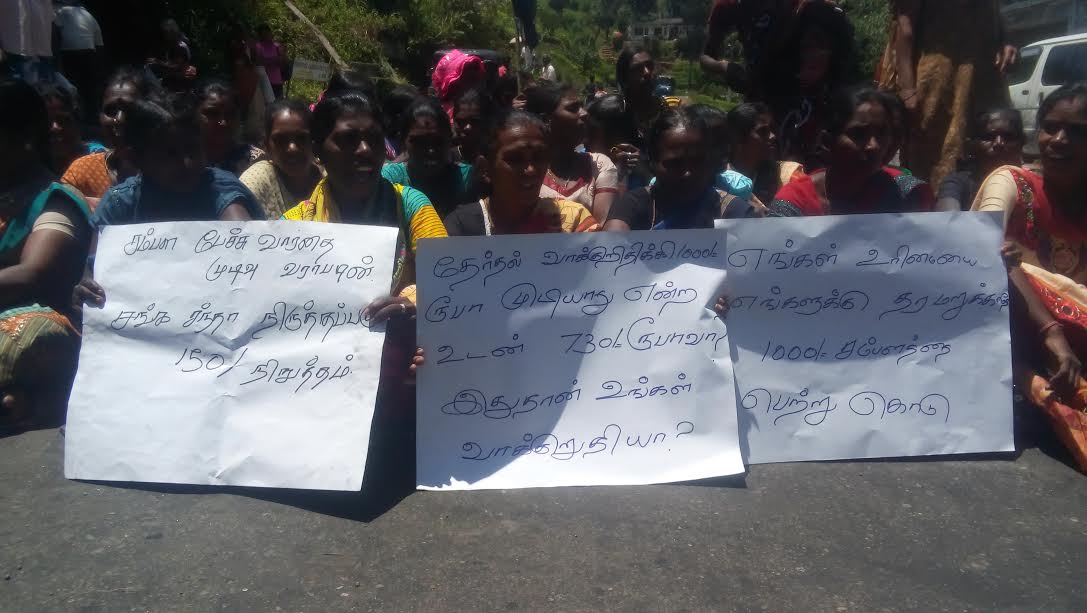 சம்பள பேச்சு வார்தை
முடிவு வராபடின்
சங்க சந்தா நிருத்தப்ப
150/ நிறுத்தம்.
தேர்தல் வாக்ஹிதிக்கி 1000/-
ரூபா முடியாது என்ற
உடன் 730/- ரூபாவா?
இதுதான் உங்கள்
வாக்க்குறுதியா?
எங்கள் உரிமையை
எங்களுக்கே தர மறுக்காதே
1000/- சம்பளத்தை
பெற்று கொடு